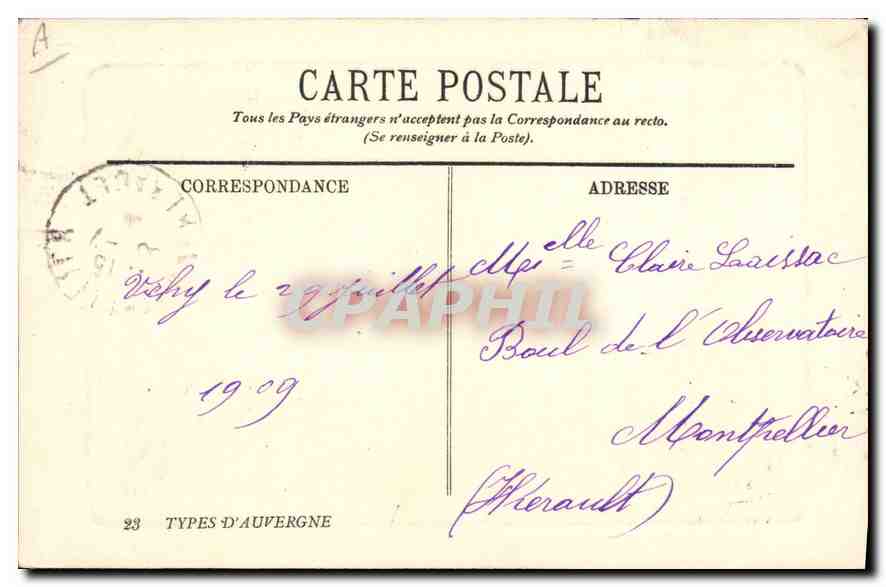 A
CARTE POSTALE
Tous les Pays étrangers n'acceptent pas la Correspondance au recto.
(Se renseigner à la Poste).
CORRESPONDANCE
ADRESSE
Vichy le 29 juillet
1909
Melle Claire
Boul de l'Observatoire
Montpellier
(Hérault)
CPAPHIL
23 TYPES D'AUVERGNE